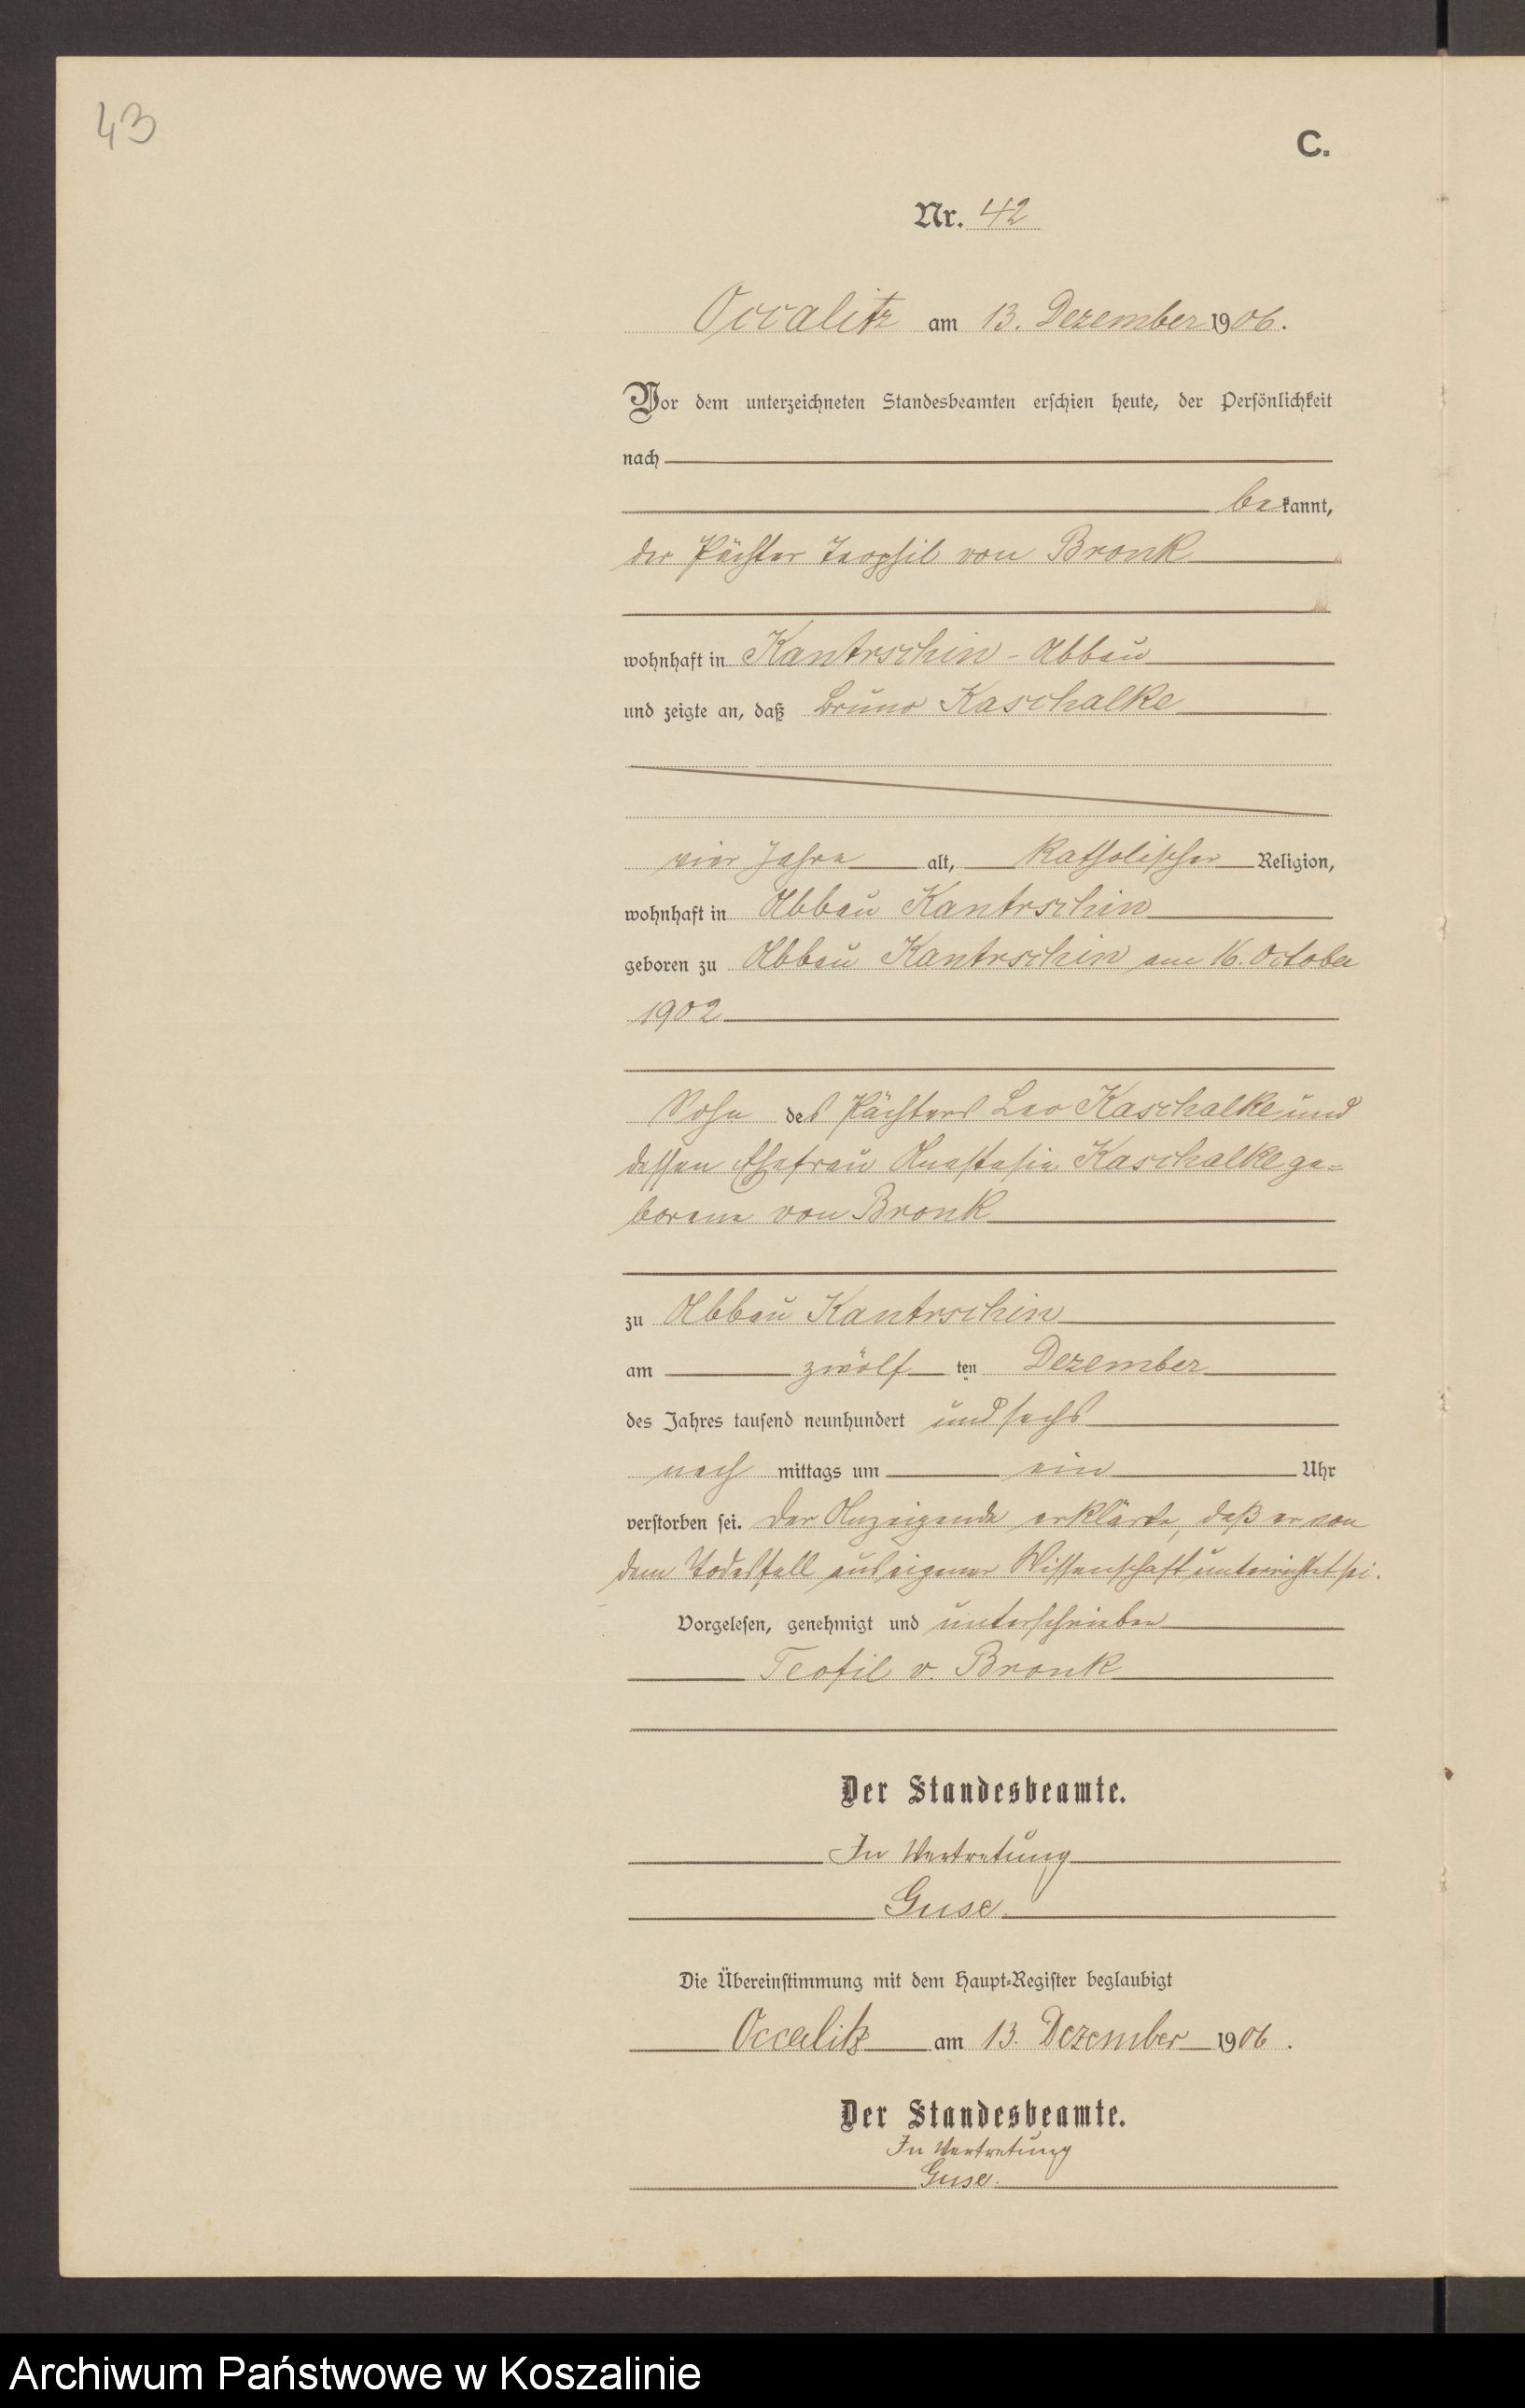 43
C.
Nr. 42
Occalitz am 13. Dezember 1906.
Vor dem unterzeichneten Standesbeamten erschien heute, der Persönlichkeit
nach
bekannt,
der Pächter Teophil von Bronk
wohnhaft in Kantrschin - Abbau
und zeigte an, daß Bruno Kaschalke
vier Jahre alt, katholischer Religion,
wohnhaft in Abbau Kantrschin
geboren zu Abbau Kantrschin am 16. October
1902
Sohn des Pächters Leo Kaschalke und
dessen Ehefrau Anastasia Kaschalke ge=
borene von Bronk
zu Abbau Kantrschin
am zwölften Dezember
des Jahres tausend neunhundert und sechs
nach mittags um ein Uhr
verstorben sei. Der Anzeigende erklärte, daß er von
dem Todesfall aus eigener Wissenschaft unterrichtet sei.
Vorgelesen, genehmigt und unterschrieben
Teofil v. Bronk
Der Standesbeamte.
In Vertretung
Guse
Die Übereinstimmung mit dem Haupt-Register beglaubigt
Occalitz am 13. Dezember 1906.
Der Standesbeamte.
In Vertretung
Guse.
Archiwum Państwowe w Koszalinie